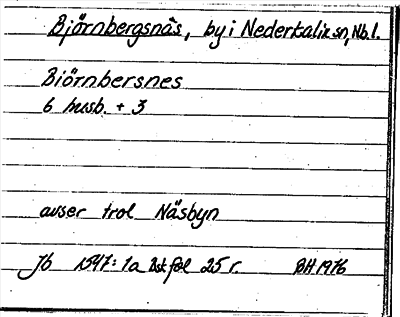 Björnbergsnäs, by i Nederkalix sn, Nb.l.
Biörnbersnes
6 husb. + 3
avser trol Näsbyn
Jb 1547: 1a Bsk fol 25 r. BH 1976